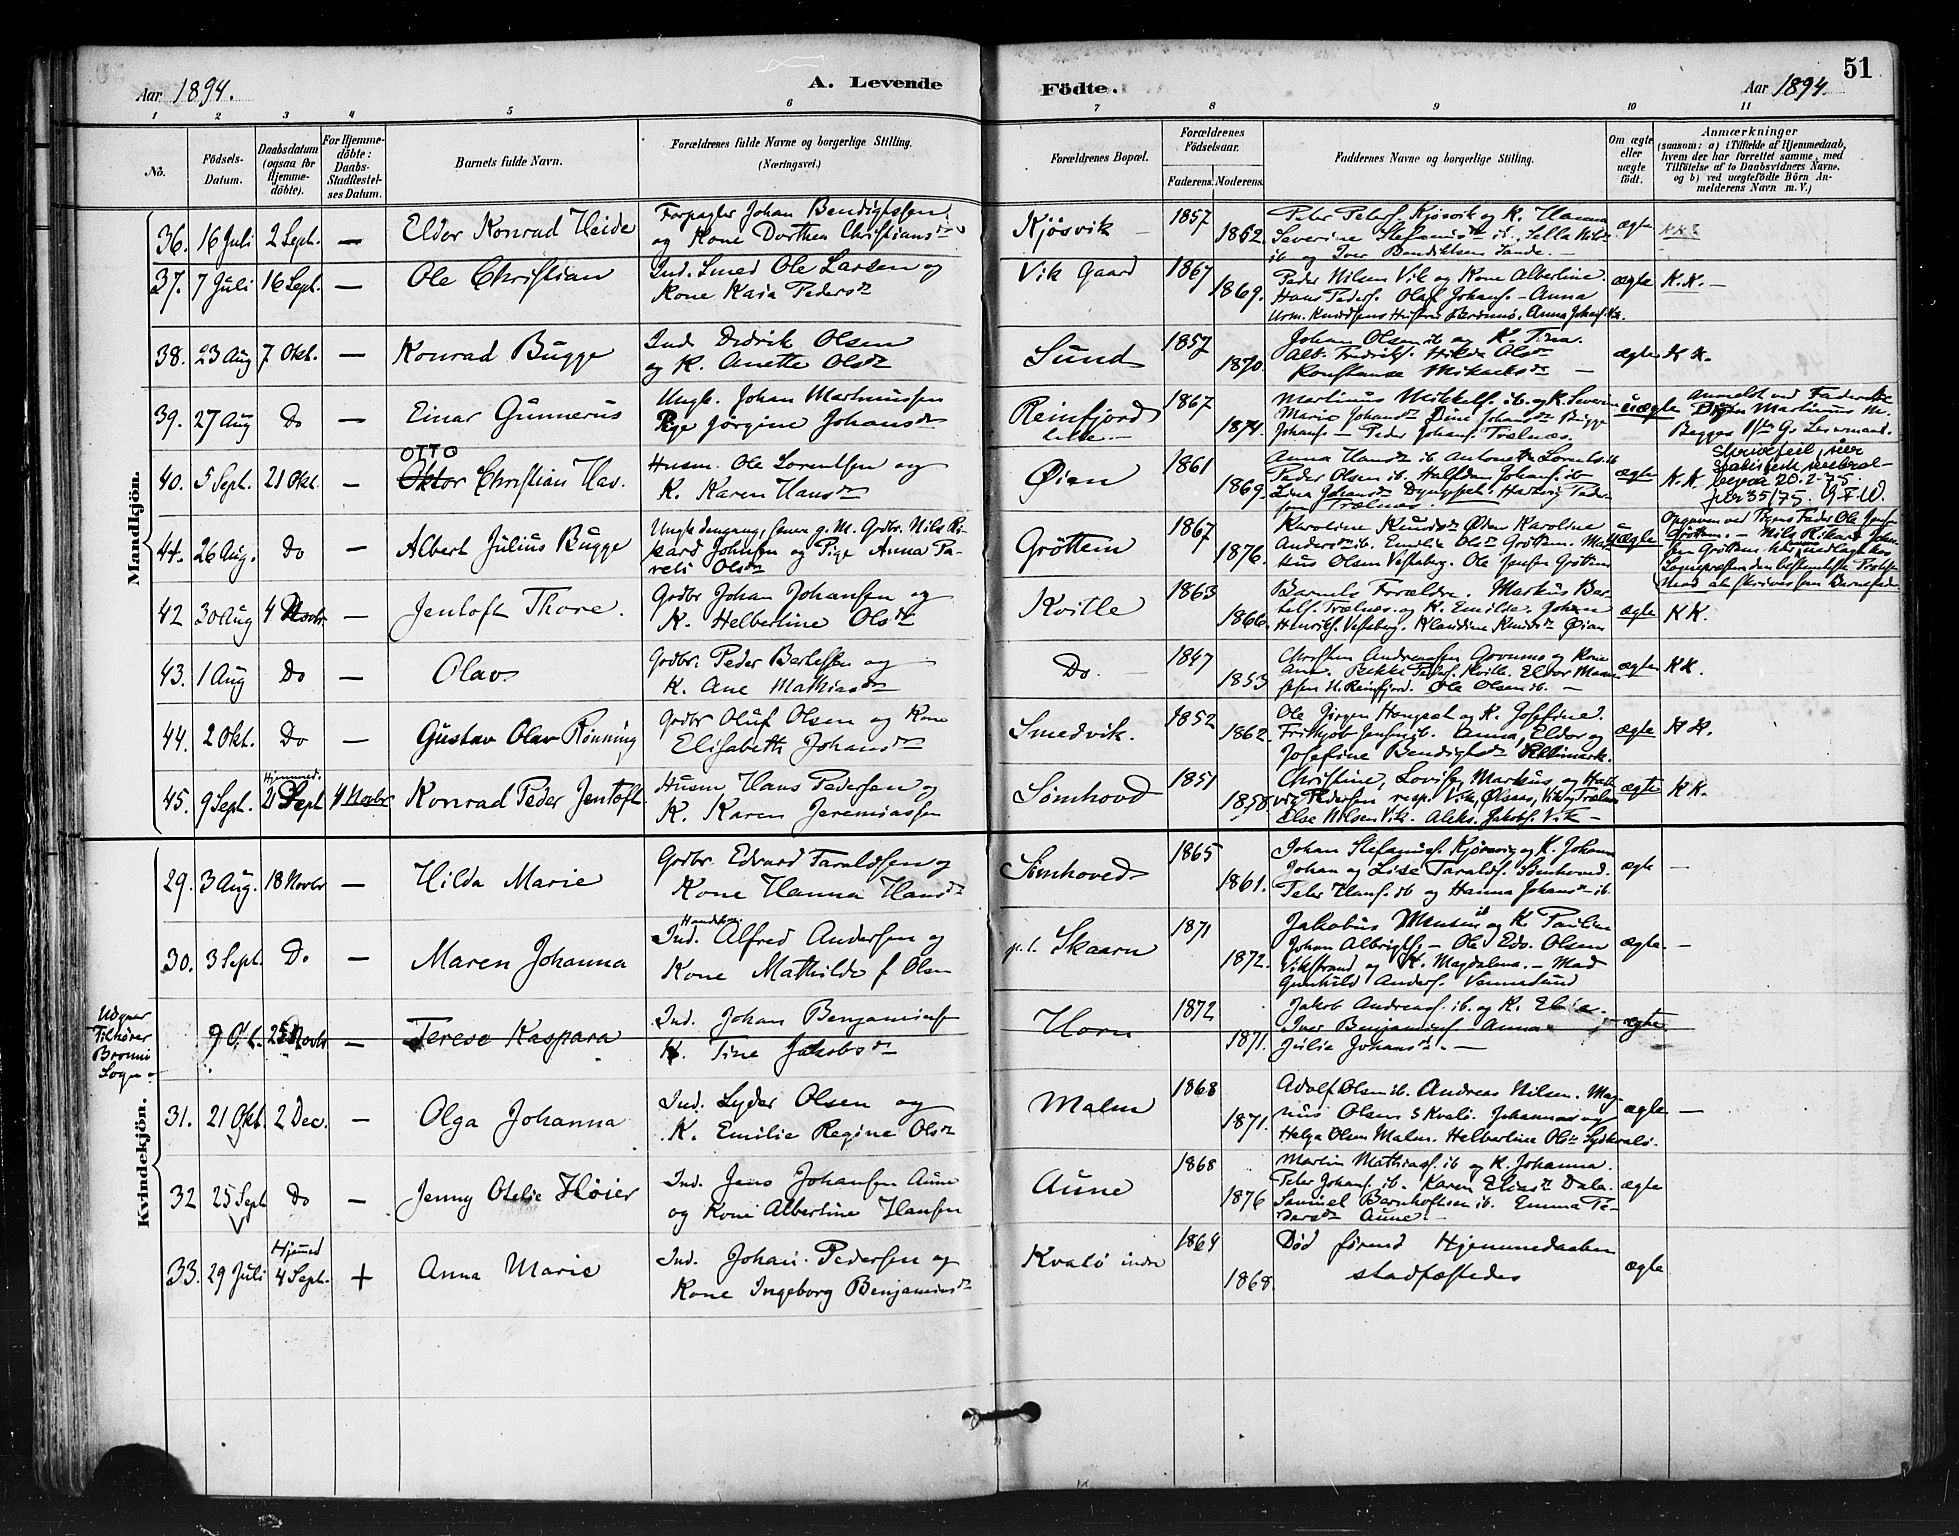 51
Aar 1894.
A. Levende
Födte.
Aar 1894.
1 2 3 4 5 6 7 8 9 10 11
No.
Födsels-
Datum.
Daabsdatum
(ogsaa for
Hjemme-
döbte).
For Hjemme-
döbte:
Daabs-
Stadfæstel-
ses Datum.
Barnets fulde Navn.
Forældrenes fulde Navne og borgerlige Stilling.
(Næringsvei.)
Forældrenes Bopæl.
Forældrenes
Födselsaar.
Faderens. Moderens.
Faddernes Navne og borgerlige Stilling.
Om ægte
eller
uægte
födt.
Anmærkninger
(saasom: a) i Tilfælde af Hjemmedaab,
hvem der har forrettet samme, med
Tilföielse af to Daabsvidners Navne,
og b) ved uægtefödte Börn An-
melderens Navn m. V.)
Mandkjön.
36. 16 Juli 2 Sept. — Eldor Konrad Heide
Forpagter Johan Bendigtssen
og Kone Dorthea Christiansdr
Kjøsvik — 1857 1862.
Peter Peters. Kjøsvik og K. Hanna
Severine Stefanusdr ib.
ib og Iver Bendiktsen Sande. —
ægte
37. 7 Juli 16 Sept. — Ole Christian
Ind. Smed Ole Larsen og
Kone Kaia Pedersdr
Vik Gaard 1867 1869.
Peder Nilsen Vik og Kone Albertine.
Hans Peders. Olaf Johans. — Anna
ægte K.K. —
38. 23 Aug 7 Okt. — Konrad Bugge
Ind. Didrik Olsen
og K. Anette Olsdr
Sund 1857 1870.
Johan Olsen ib og K. Trine.
Alb. Fredriks. Hilda Olsdr
Konstanse Mikaelsdr —
ægte K K.
39. 27 Aug Do — Einar Gunnerus
Ungk. Johan Martinussen
Pige Jørgine Johansdr
Reinfjord
lille. — 1867 1874.
Martinus Mikkels. ib. og K. Severine
Marie Johansdr
Johans — Peder Johans. Trælnæs.
uægte
Anmeldt ved Faderen
Martinus M.
40. 5 Sept. 21 Okt. — OTTO
Oktor Christian Hav.
Husm. Ole Lorentsen og
K. Karen Hansdr
Øien 1861 1869.
Anna Hansdr ib Antonette Lorentsdr ib
Peder Olsen ib. Halfdan Johans. ib
Lina Johansdr Hartvig Peder-
sen Trælnæs.
ægte K.K
Skrivefeil,
20-2-75.
35/75.
41. 26 Aug. Do — Albert Julius Bugge
Nils Ri-
kard Johnsen og Pige Anna Pa-
reli Olsdr
Grøttem 1867 1876.
Karoline Knudsdr Øien Karoline
Andersdr ib. Emilie Olsdr Grøttem.
Olsen Vesteberg. Ole Jensen Grøttem
uægte
Opgaven ved Pigens Fader Ole Jens-
Grøttem. — Nils Rikard John-
sen Grøttem har
42 30 Aug 4 Novbr — Jentoft Thore.
Grdbr Johan Johansen og
K. Helbertine Olsdr
Kville 1863 1866.
Barnets Forældre. Markus Ber-
tels. Trælnæs og K. Emilie. Johan
Henriks. Vesteberg. Klaudine Knudsdr Øien
ægte K K.
43. 1 Aug Do — Olav
Grdbr. Peder Bertelsen og
K. Ane Mathiasdr
Do. 1847 1853
Christen Andreassen og Kone
Anna. Kville. Eldor
Reinfjord. Ole Olsen ib. —
ægte K K.
44. 2 Okt. Do — Gustav Olav Rønning
Grdbr Oluf Olsen og Kone
Elisabeth Johansdr
Smedvik. 1852 1862.
Ole Jørgen Hongset og K. Josefine.
Frithjob Jensen ib. Anna, Eldor og
Josefine Bendigtsdr
ægte K K.
45. 9 Sept. Hjemmed.
21 Sept 4 Novbr Konrad Peder Jentoft
Husm Hans Pedersen og
K. Karen Jeremiassen
Sømhovd 1851 1858.
Christine, Lovise, Markus, og Hart-
vig Pedersen resp. Vik, Ølsnes, Vik og Trælnæs
Else Nilsen Vik. Aleks. Jakobs. Vik —
ægte K K.
Kvindekjön.
29. 3 Aug. 18 Novbr — Hilda Marie
Grdbr. Edvard Taraldsen og
Kone Hanna Hansdr
Sømhoved 1865 1861.
Johan Stefanus. Kjøsvig og K. Johanna
Johan og Lise Taralds. Sømhoved.
Peter Hans. ib og Hanna Johansdr ib.
ægte —
30. 3 Sept. Do — Maren Johanna
Ind. Alfred Andersen og
Kone Mathilde f Olsen
Skaarn 1871 1872.
Jakobus Monsen og K. Pauline
Johan Albrigts. — Ole Edv. Olsen
Vikstrand og K. Magdalena. — Mad
Gunhild Anders. Vennesund
ægte. —
Udgaar
Tilhører
Brønnø
Sogn
9 Okt. 25 Novbr — Terese Kaspara
Ind. Johan Benjamins.
K. Tine Jakobsdr
Horn 1872 1871.
Jakob Andreas. ib. og K. Elise.
Iver Benjamins. Anna
Julie Johansdr. —
ægte
31. 21 Okt. 2 Dec. — Olga Johanna
Ind. Lyder Olsen og
K. Emilie Regine Olsdr
Malm 1868 1871.
Adolf Olsen ib. Andreas Nilsen. Mag-
nus Olsen S Kvalø. Johannes og
Helga Olsen Malm. Helbertine Olsdr Sydkvalø.
ægte —
32 25 Sept Do — Jenny Otelie Høier
Ind. Jens Johansen Aune
og Kone Albertine Hansen
Aune 1868 1876
Martin Mathias. ib og K. Johanna.
Peter Johans. ib. Karen Eliasdr Dale.
Samuel Bernhoftsen ib. Emma Pe-
dersdr Aune. —
ægte
33. 29 Juli Hjemmed
4 Sept. + Anna Marie
Ind. Johan Pedersen og
Kone Ingeborg Benjaminsdr
Kvalø indre 1864 1868.
Død førend Hjemmedaaben
stadfæstedes
ægte